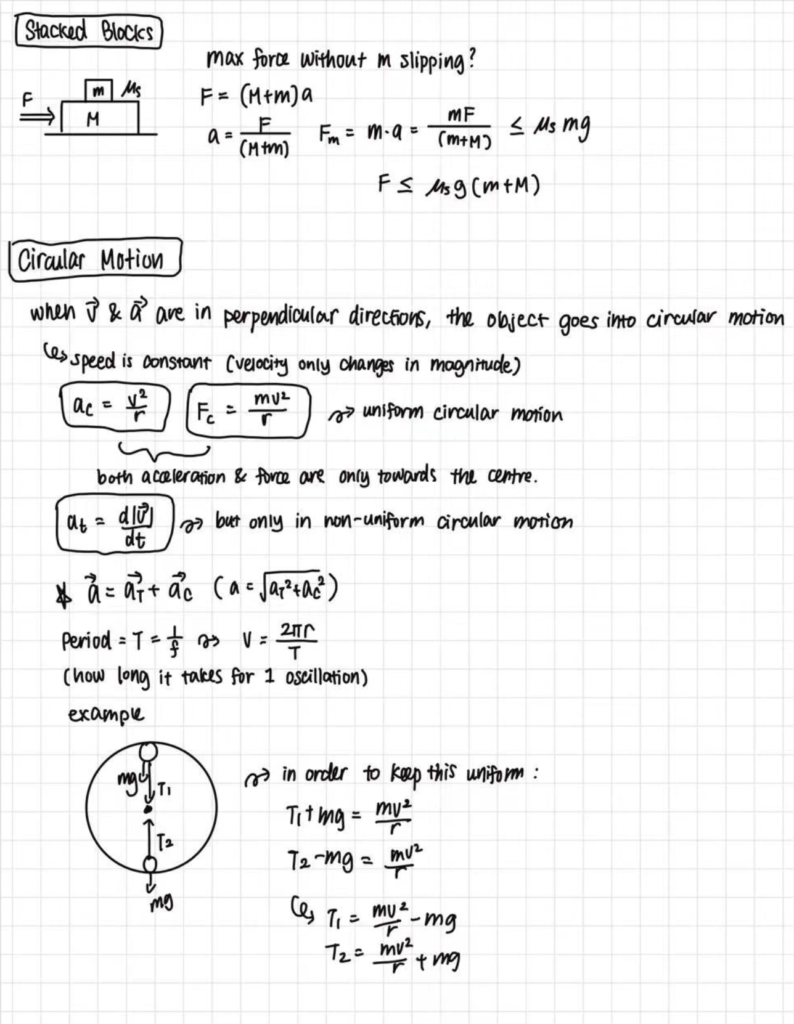 Stacked Blocks
max force without m slipping?
F
m μs
M
F = (M+m)a
a = F/(M+m) Fm = m·a = mF/(m+M) ≤ μs mg
F ≤ μsg(m+M)
Circular Motion
when v⃗ & a⃗ are in perpendicular directions, the object goes into circular motion
↳ speed is constant (velocity only changes in magnitude)
ac = v²/r Fc = mv²/r → uniform circular motion
both acceleration & force are only towards the centre.
at = d|v⃗|/dt → but only in non-uniform circular motion
* a⃗ = a⃗T + a⃗c (a = √(aT²+ac²))
Period = T = 1/f → V = 2πr/T
(how long it takes for 1 oscillation)
example
mg T1
T2
mg
→ in order to keep this uniform :
T1+mg = mv²/r
T2-mg = mv²/r
↳ T1 = mv²/r - mg
T2 = mv²/r + mg